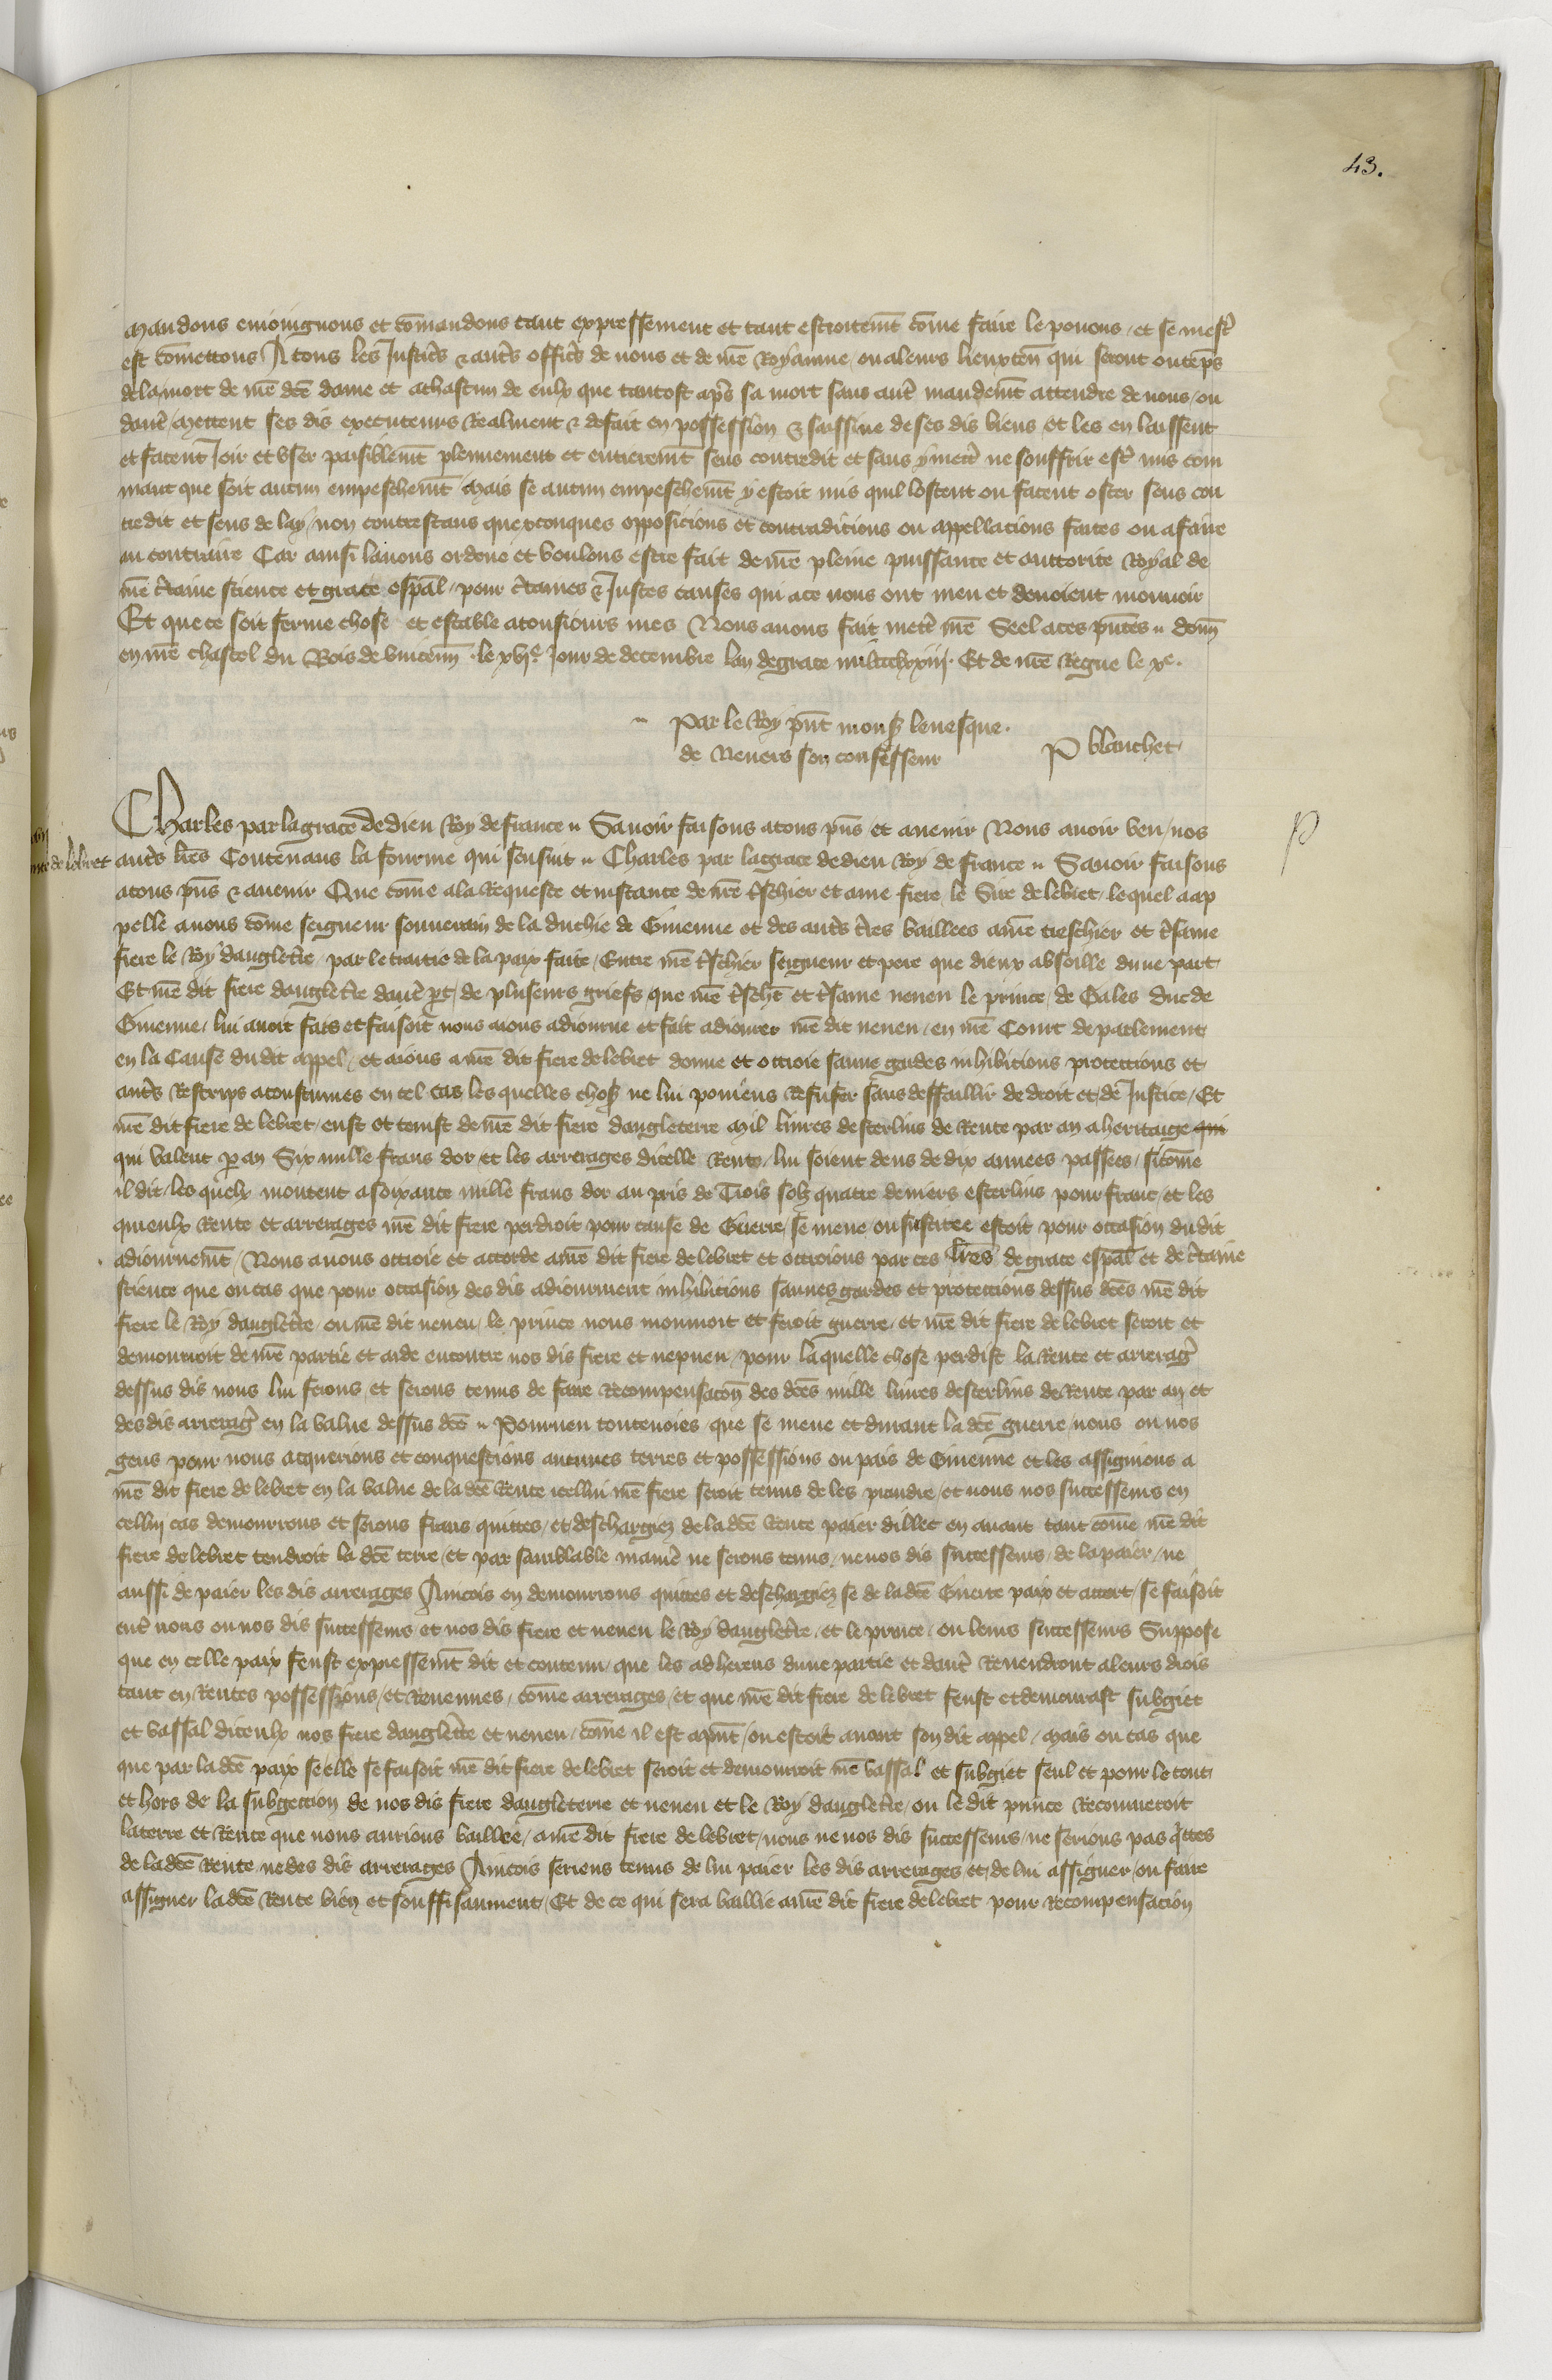 43.
mandons enioingnons et cōmandons tant expressement et tant estroitemēt cōme faire le pouons / et se mest̉
est cōmettons A tous les Justic̉s & aut̉s offic̉s de nous et de nr̄e Royaume / ou a leurs lieuxten̄ qui seront ou tēps
de la mort de nr̄e dcē dame et a chascun de eulx que tantost apr̉s sa mort sans aut̉ mandemēt attendre de nous / ou
daut̉ / mettent ses dis executeurs Realment & de fait en possession & saissine de ses dis biens et les en laissent
et facent Joir et vser paisiblemēt plennement et entieremēt sens contredit et sans y mett̉ ne souffrir est̉ mis com
mant que soit aucun empeschemēt Mais se aucun empeschemēt y estoit mis quil lostent ou facent oster sens con
tredit et sens delay / non contrestans quexconques opposicions et contradicions ou appellacions faites ou a faire
au contraire Car ainsi lauons ordene et voulons estre fait de nr̄e pleine puissance et auttorite Royal de
nr̄e c̉taine science et grace esp̄al / pour c̉taines & Justes causes qui a ce nous ont meu et deuoient mouuoir
Et que ce soit ferme chose et estable a tousiours mes Nous auons fait mett̉ nr̄e Seel a ces p̄ntes .. Donn̄
en nr̄e chastel du Bois de vincenn̄ . le xvjͤ Jour de decembre lan de grace mil ccc lxxiij . Et de nr̄e Regne le xͤ .
Par le Roy p̄nt monsʒ leuesque .
de Neuers son confesseur P blanchet
Charles par la grace de dieu Roy de france .. Sauoir faisons a tous p̄ns et auenir Nous auoir veu / nos
de lebret
aut̉s lr̄es Contenans la fourme qui sensuit .. Charles par la grace de dieu Roy de france .. Sauoir faisons
P
a tous p̄ns & auenir Que cōme a la Requeste et instance de nr̄e t̉schier et ame frere le Sire de lebret / lequel a ap
pelle a nous cōme seigneur souuerain de la duchie de Guienne et des aut̉s t̉res baillees a nr̄e treschier et t̉same
frere le Roy danglet̉re / par le traitie de la paix faite / Entre nr̄e t̉schier seigneur et pere que dieux absoille dune part
Et nr̄e dit frere danglet̉re daut̉ p̱t / de pluseurs griefs / que nr̄e t̉schī et t̉same neueu le prince de Gales duc de
Guienne / lui auoit fais et faisoit nous aions adiourne et fait adiourner nr̄e dit neueu / en nr̄e Court de parlement
en la Cause du dit appel / et aions a nr̄e dit frere de lebret donne et ottroie sauue gardes inhibitions protections et
aut̉s Rescrips acoustumes en tel cas les quelles chosʒ ne lui pouiens Refuser sans deffaillir de droit et de Justice / Et
nr̄e dit frere de lebret / eust et tenist de nr̄e dit frere dangleterre Mil liures desterlins de Rente par an a heritaige qui
qui valent p̱ an Six mille frans dor / et les arrerages dicelle Rente / lui soient deus de dix annees passees / sicōme
il dit / les quelx montent a soixante mille frans dor au pris de Trois solʒ quatre deniers esterlins pour franc et les
quieulx Rente et arrerages nr̄e dit frere perdroit pour cause de Guerre / se meue ou suscitee estoit pour occasion du dit
adiournemēt / Nous auons ottroie et accorde a nr̄e dit frere de lebret et ottroions par ces lr̄es de grace esp̄al et de c̉taine
science que ou cas que pour occasion des dis adiournment inhibitions sauues gardes et protections dessus dcēs nr̄e dit
frere le Roy danglet̉re / ou nr̄e dit neueu / le prince nous mouuroit et feroit guerre / et nr̄e dit frere de lebret seroit et
demourroit de nr̄e partie et aide encontre nos dis frere et nepueu / pour laquelle chose perdist la Rente et arrerag̉
dessus dis nous lui ferons et serons tenus de faire Recompensacōn des dcēs mille liures desterlins de Rente par an et
des dis arrerag̉ en la value dessus dcē .. Pourueu toutesuoies que se meue et durant la dcē guerre / nous ou nos
gens pour nous acquerions et conquestions aucunes terres et possessions ou pais de Guienne et les assignions a
nr̄e dit frere de lebret en la value de la dcē Rente icellui nr̄e frere seroit tenus de les prandre / et nous nos successeurs en
cellui cas demourrons et serons frans quittes / et deschargieʒ de la dcē Rente paier dillec en auant tant cōme nr̄e dit
frere de lebret tendroit la dcē terre / et par samblable maniẻ ne serons tenus / ne nos dis successeurs / de la paier / ne
aussi de paier les dis arrerages Aincois en demourrons quittes et deschargieʒ se de la dcē Guerre paix et accort / se faisoit
ent̉ nous ou nos dis successeurs et nos dis frere et neueu le Roy danglet̉re / et le prince / ou leurs successeurs Suppose
que en celle paix feust expressemēt dit et contenu / que les adherens dune partie et daut̉ Reuendront a leurs drois
tant en Rentes possessions / et Reuenues / cōme arrerages / et que nr̄e dit frere de lebret feust et demourast subgiet
et vassal diceulx nos frere danglet̉re et neueu / cōme il est a p̄nt / ou estoit auant son dit appel / Mais ou cas que
que par la dcē paix se elle se faisoit nr̄e dit frere de lebret seroit et demourroit nr̄e vassal et subgiet seul et pour le tout
et hors de la subgection de nos dis frere dangleterre et neueu et le Roy danglet̉re / ou le dit prince Recouureroit
la terre et Rente que nous aurions baillee / a nr̄e dit frere de lebret / nous ne nos dis successeurs / ne serions pas q̉ttes
de la dcē Rente / ne des dis arrerages Aincois seriens tenus de lui paier les dis arrerages et de lui assigner / ou faire
assigner la dcē Rente bien et souffisaument / Et de ce qui sera baillie a nr̄e dit frere de lebret pour Recompensacion